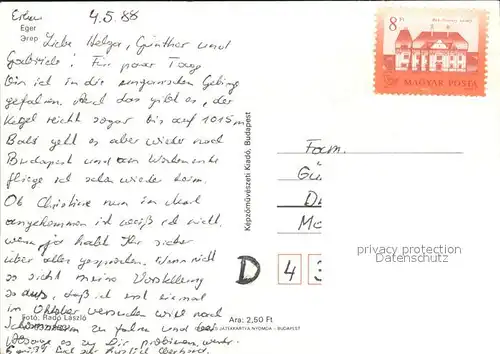 4.5.88
Eger
Эгер
Liebe Helga, Günther und
Gabriele! Für paar Tage
bin ich in die ungarischen Gebirge
gefahren. Auch das gibt es, der
Kegel reicht sogar bis auf 1015 m
Bald geht es aber wieder nach
Budapest und am Wochenende
fliege ich schon wieder heim.
Ob Christine nun im Marl
angekommen ist weiß ich nicht,
wenn ja habt Ihr sicher
über alles gesprochen. Wenn nicht
so sieht meine Vorstellung
so aus, daß ich erst einmal
im Oktober versuchen wird nach
zu fahren und
es zu
Fotó: Radó László
Ara: 2,50 Ft
JÁTÉKKÁRTYA NYOMDA - BUDAPEST
Képzőművészeti Kiadó, Budapest
8 Ft
MAGYAR POSTA
Fam.
Gü
D 4 3
privacy protection
Datenschutz